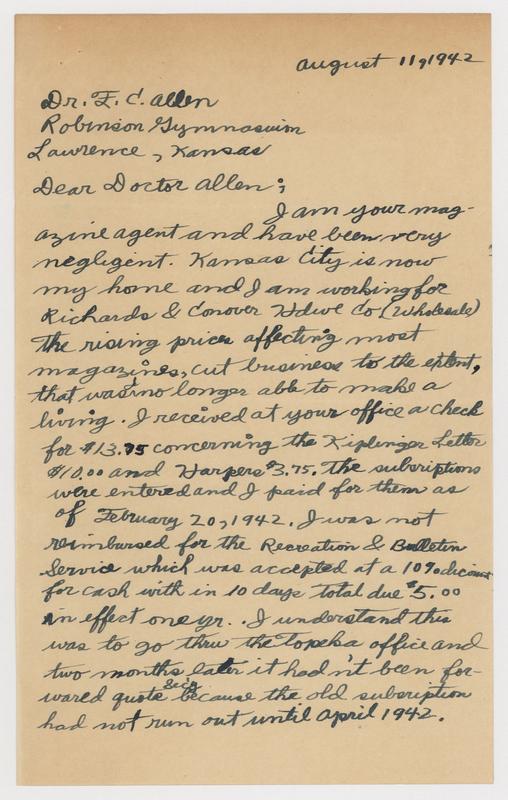 August 11, 1942
Dr. F. C. Allen
Robinson Gymnasuim
Lawrence, Kansas
Dear Doctor Allen;
I am your mag-
azine agent and have been very
negligent. Kansas City is now
my home and I am working for
Richards & Conover Hdwe Co (Wholesale)
The rising prices affecting most
magazines, cut business to the extent,
that was I no longer able to make a
living. I received at your office a check
for $13.75 concerning the Kiplinger Letter
$10.00 and Harpers $3.75. The subcriptions
were entered and I paid for them as
of February 20, 1942. I was not
reimbursed for the Recreation & Bulletin
Service which was accepted at a 10% discount
for cash with in 10 days total due $5.00
in effect one yr. . I understand this
was to go thru the Topeka office and
two months later it hadn't been for-
wared quote Sec'y because the old subsription
had not run out until April 1942.